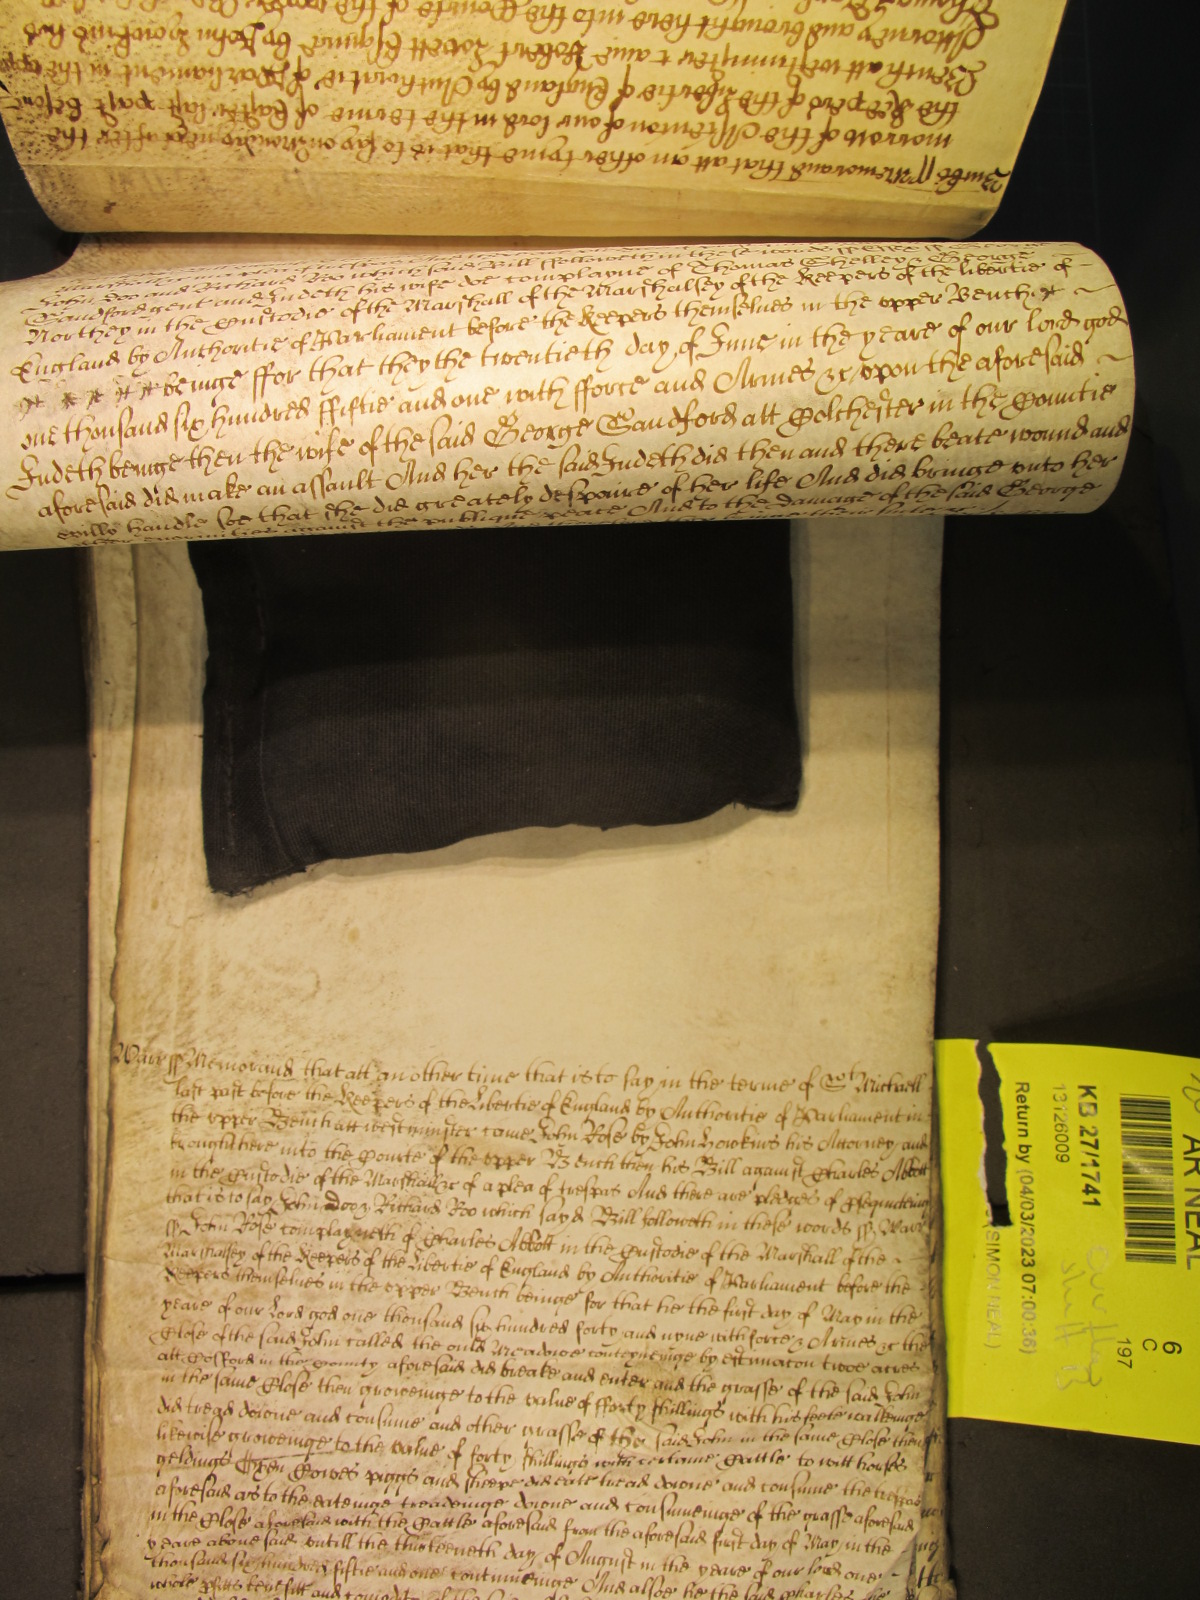 Burbs ss Memorand that att an other tyme that is to say on Monday next after the
morrow of the Ascention of our lord in the terme of Easter last past before
the Keepers of the libertie of England by Authoritie of Parliament in the upper
Bench att Westminster came Robert Lovett Esquire by John
Attorney and brought here into the Courte of the
John Doo and Richard Roo which said Bill followeth in these words ss Essex ss George
Sandford gent and Judeth his wife doe complayne of Thomas Shelley & George
Northey in the Custodie of the Marshall of the Marshalsey of the Keepers of the libertie of
England by Authoritie of Parliament before the Keepers themselves in the upper Bench
beinge ffor that they the twentieth day of June in the yeare of our lord god
one thousand six hundred ffiftie and one with fforce and Armes &c upon the aforesaid
Judeth beinge then the wife of the said George Sandford att Colchester in the Countie
aforesaid did make an assault And her the said Judeth did then and there beate wound and
evilly handle soe that she did greately despaire of her life And did bringe unto her
other enormities against the publique peace And to the damage of the said George
Warr ss Memorand that att an other time that is to say in the terme of St Michaell
last past before the Keepers of the Libertie of England by Authoritie of Parliament in
the upper Bench att Westminster came John Rose by John Howkins his Attorney and
brought here into the Courte of the upper Bench then his Bill against Charles Abbott
in the Custodie of the Marshall &c of a plea of trespas And there are pledges of
that is to say John Doo & Richard Roo which sayd Bill followeth in these words ss Warr
ss John Rose complayneth of Charles Abbott in the Custodie of the Marshall of the
Marshalsey of the Keepers of the Libertie of England by Authoritie of Parliament before the
Keepers themselves in the upper Bench beinge for that he the first day of May in the
yeare of our Lord god one thousand six hundred forty and nyne with force & Armes &c the
Close of the said John called the ould Meadowe conteyneinge by estimacon twoe acres
att Gosford in the County aforesaid did breake and enter and the grasse of the said John
in the same Close then groweinge to the value of fforty shillings with his feete walkeinge
did tread downe and consume and other grasse of the said John in the same Close then
likewise groweinge to the value of forty shillings with certaine Cattle to witt horses
geldings Oxen Cowes piggs and sheepe did eate tread downe and consume the trespas
aforesaid as to the eateinge treadeinge downe and consumeinge of the grasse aforesaid
in the Close aforesaid with the Cattle aforesaid from the aforesaid first day of May in the
yeare abovesaid untill the thirteeneth day of August in the yeare of our lord one
thousand six hundred fiftie and one continueinge And alsoe he the said Charles the
AR NEAL
KB 27/1741
13126009
Return by (04/03/2023 07:00:36)
(SIMON NEAL)
6
C
197